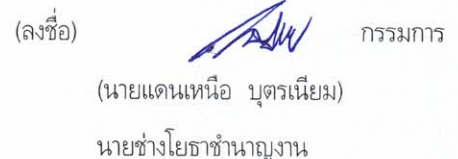 (ลงชื่อ) กรรมการ
(นายแดนเหนือ บุตรเนียม)
นายช่างโยธาชำนาญงาน